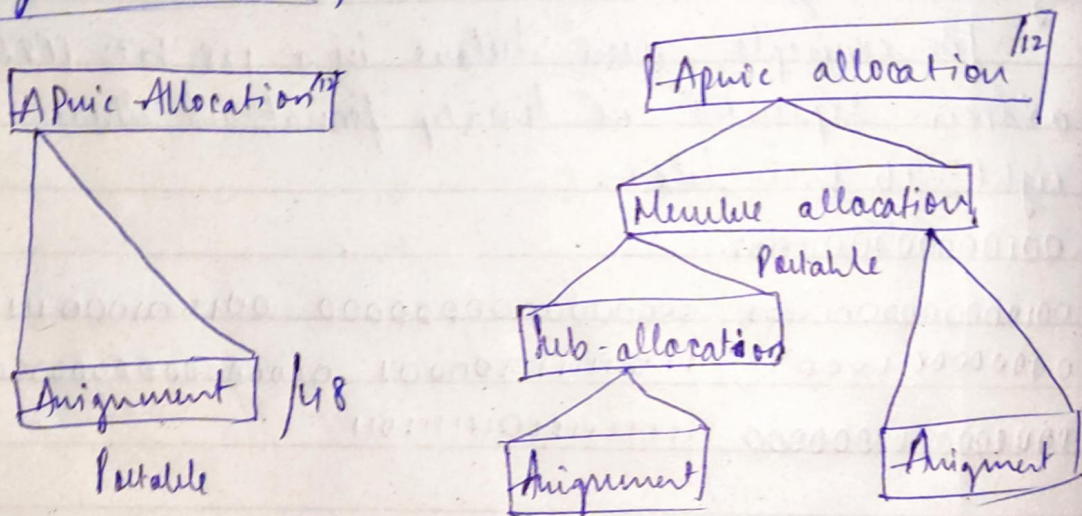 Apnic Allocation /12
Assignment /48
Portable
/12
Apnic allocation
Member allocation
Portable
Sub-allocation
Assignment
Assigment